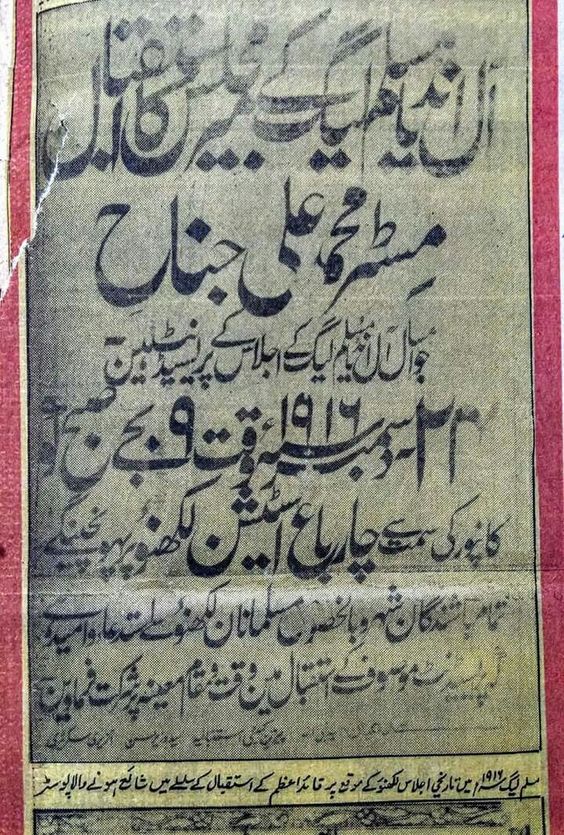 آل انڈیا مسلم لیگ کے میر مجلس کا استقبال
مسٹر محمد علی جناح
جو امسال آل انڈیا مسلم لیگ کے اجلاس کے پریسیڈنٹ ہین
۲۳ - دسمبر سنہ ۱۹۱۶ء وقت ۹ بجے صبح کو
کانپور کی سمت سے چارباغ اسٹیشن لکھنؤ پر پہونچینگے
تمام باشندگان شہر و بالخصوص مسلمانان لکھنؤ سے استدعا و امید ہے
کہ پریسیڈنٹ موصوف کے استقبال مین وقت و مقام معینہ پر شرکت فرماوین
سید وزیر حسن آنریری سکرٹری
مسلم لیگ سنہ ۱۹۱۶ء میں تاریخی اجلاس لکھنؤ کے موقع پر قائد اعظم کے استقبال کے سلسلے میں شائع ہونے والا پوسٹر